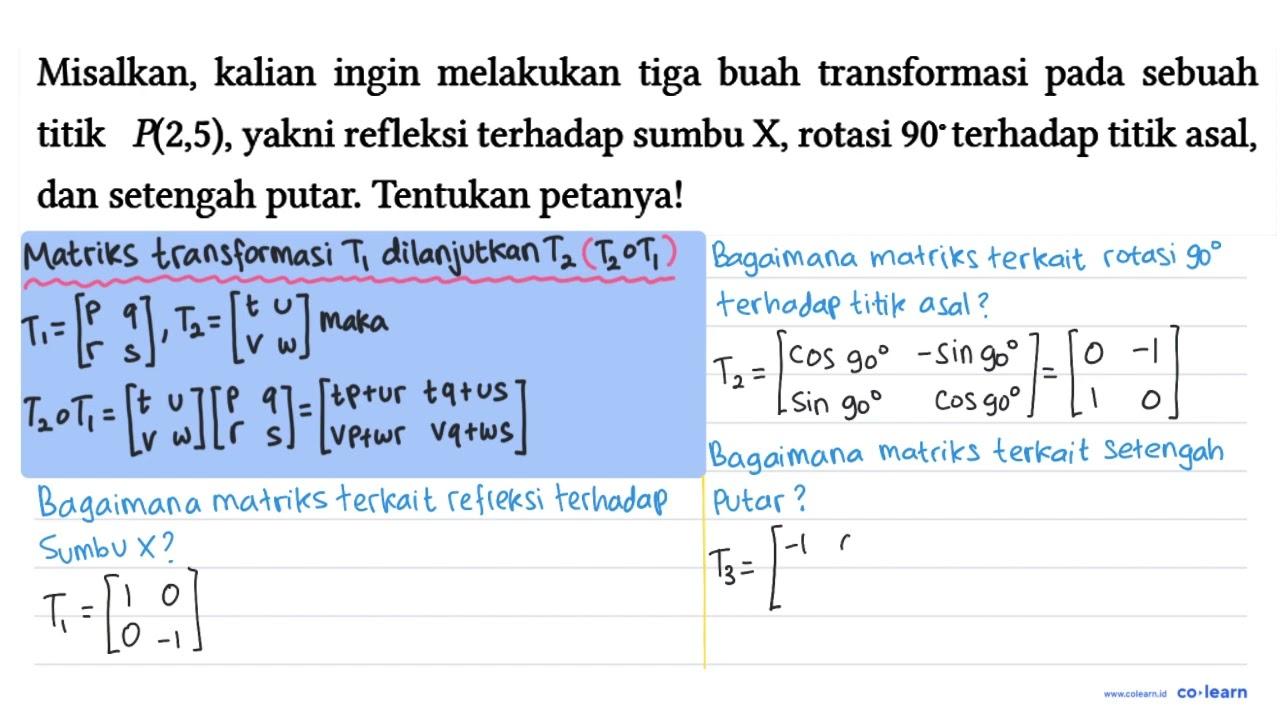 Misalkan, kalian ingin melakukan tiga buah transformasi pada sebuah
titik P(2,5), yakni refleksi terhadap sumbu X, rotasi 90° terhadap titik asal,
dan setengah putar. Tentukan petanya!
Matriks transformasi T₁ dilanjutkan T₂ (T₂∘T₁)
T₁ = [p q; r s], T₂ = [t u; v w] maka
T₂∘T₁ = [t u; v w][p q; r s] = [tp+ur tq+us; vp+wr vq+ws]
Bagaimana matriks terkait refleksi terhadap
sumbu X?
T₁ = [1 0; 0 -1]
Bagaimana matriks terkait rotasi 90°
terhadap titik asal?
T₂ = [cos 90° -sin 90°; sin 90° cos 90°] = [0 -1; 1 0]
Bagaimana matriks terkait setengah
putar?
T₃ = [-1
www.colearn.id co·learn